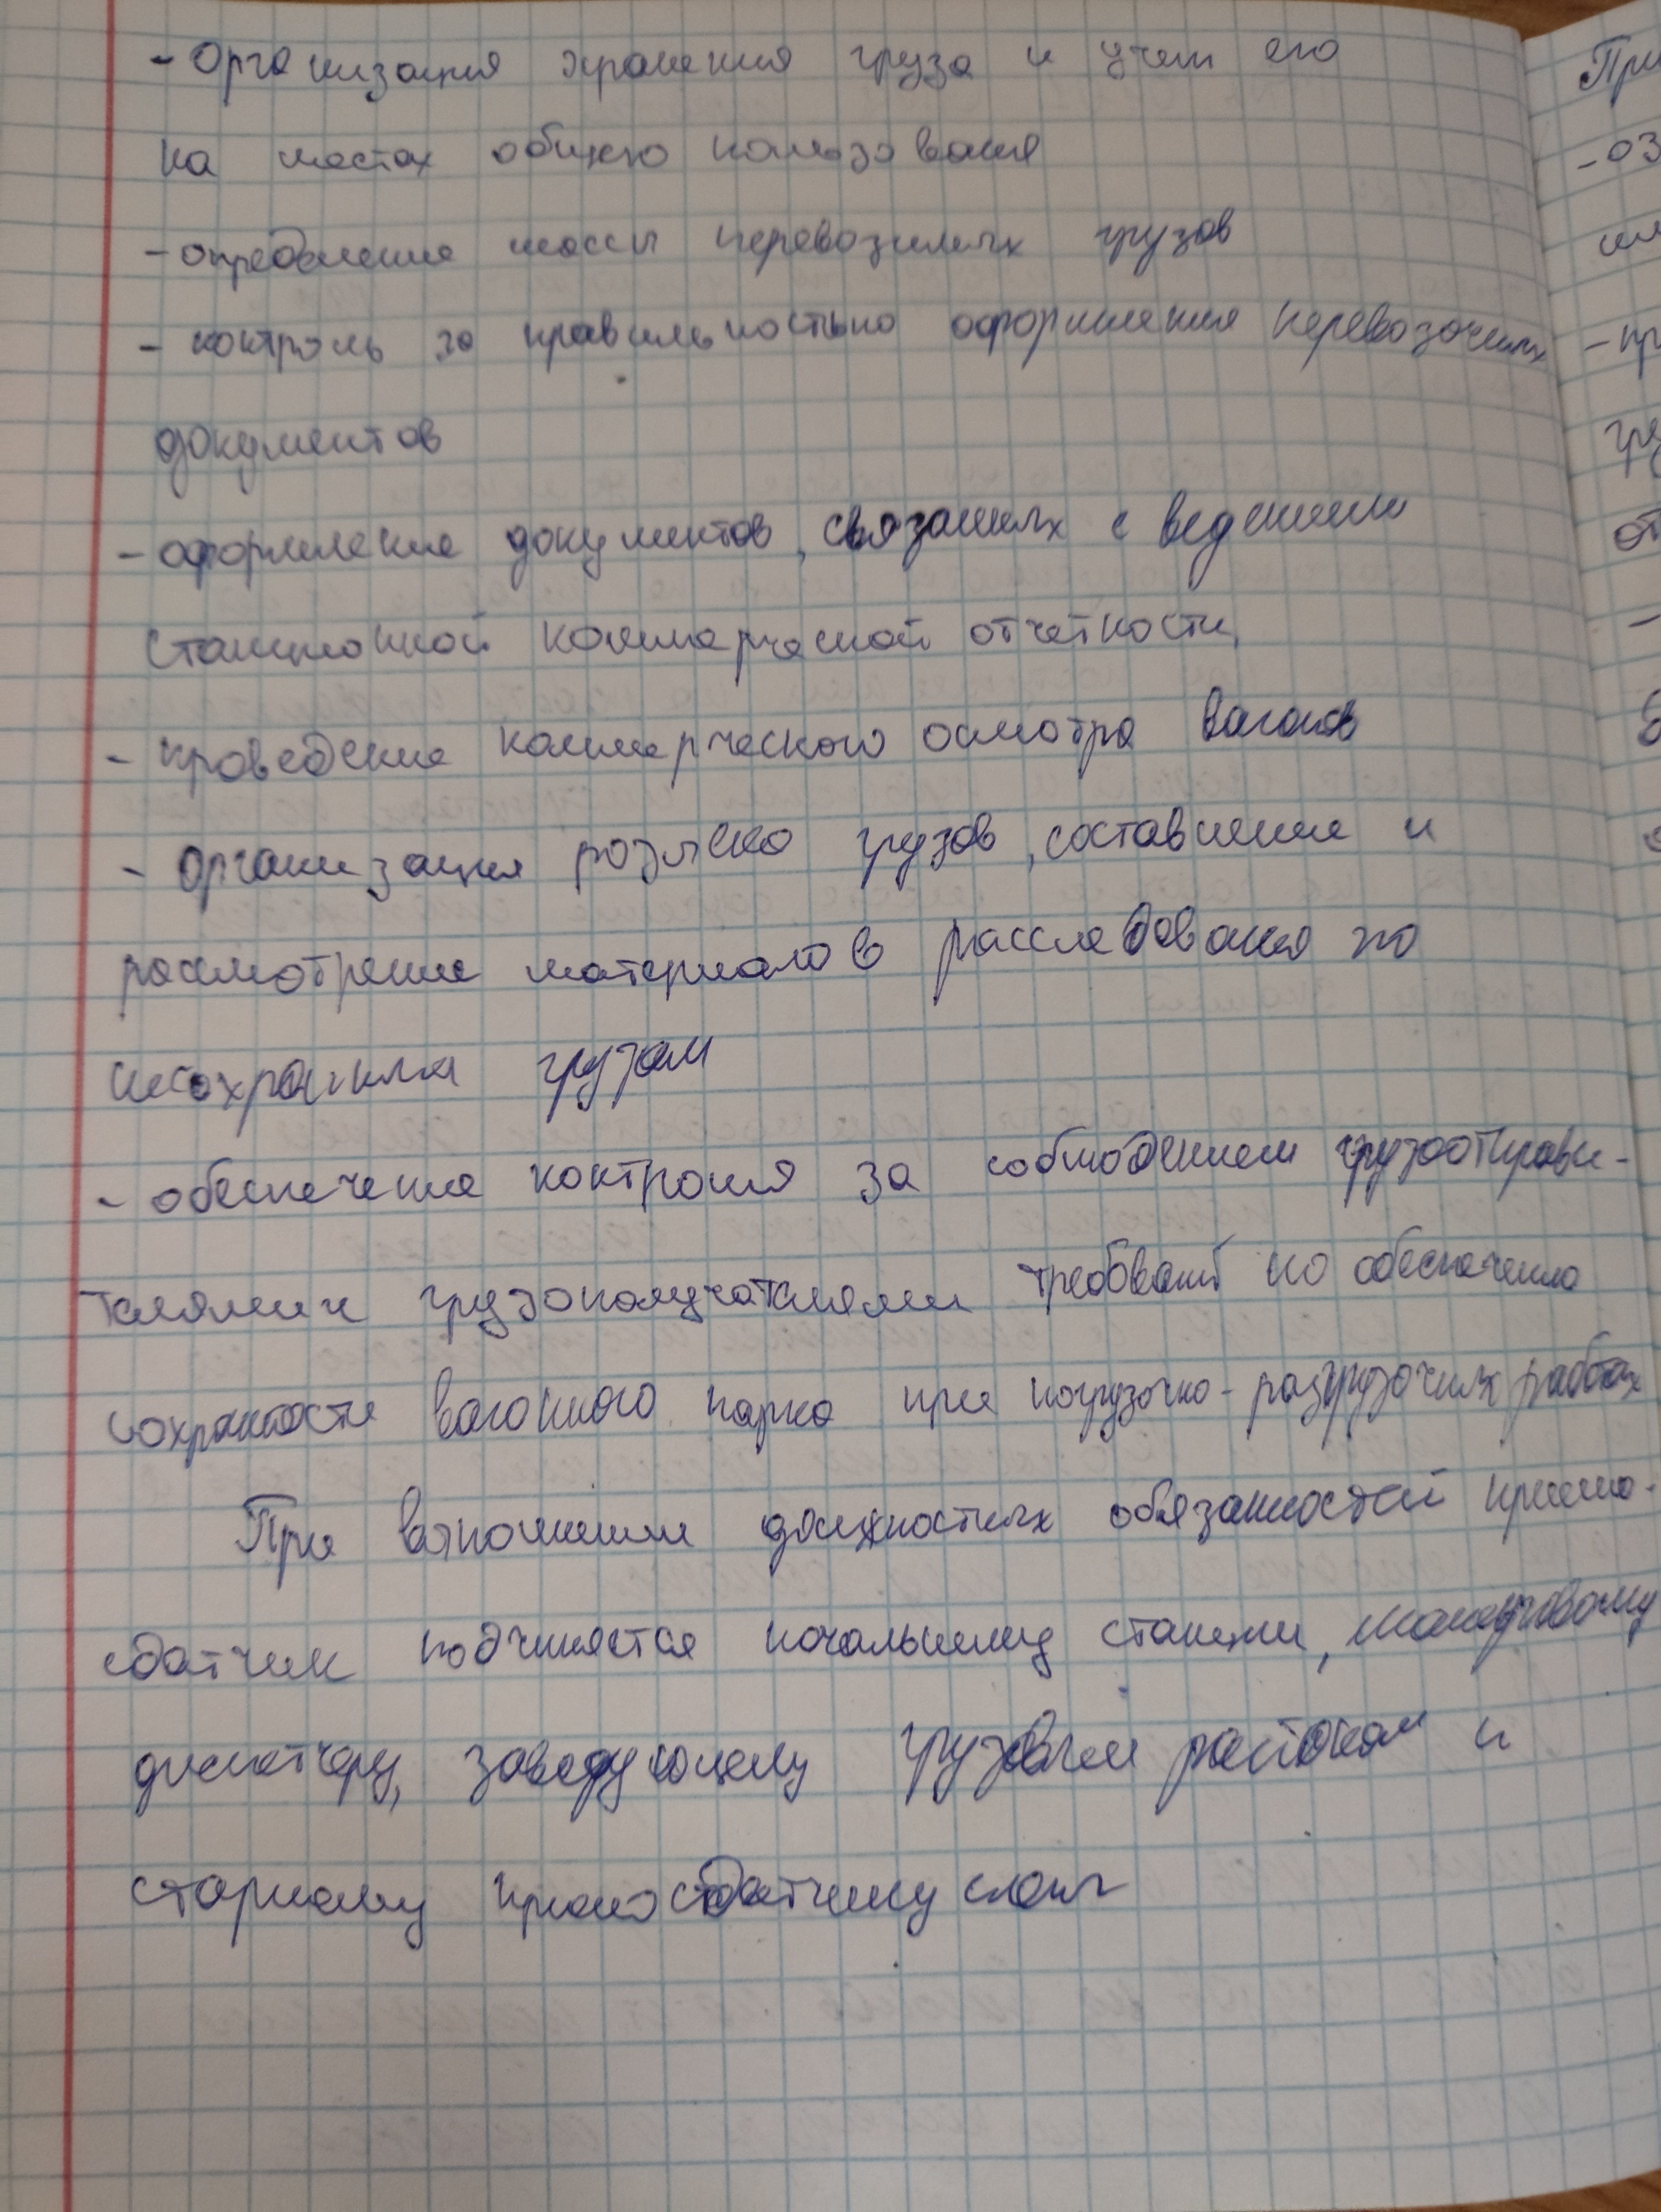 - Организация хранения груза и учет его
на местах общего пользования
- определение массы перевозимых грузов
- контроль за правильностью оформления перевозочных
документов
- оформление документов, связанных с ведением
станционной коммерческой отчетности,
- проведение коммерческого осмотра вагонов
- организация розыска грузов, составление и
рассмотрение материалов расследования по
несохранным грузам
- обеспечение контроля за соблюдением грузоотправи-
телями и грузополучателями требований по обеспечению
сохранности вагонного парка при погрузочно-разгрузочных работах
При выполнении должностных обязанностей приемо-
сдатчик подчиняется начальнику станции, маневровому
диспетчеру, заведующему грузовым районом и
старшему приемосдатчику
При
- оз
- пр
гру
от
-